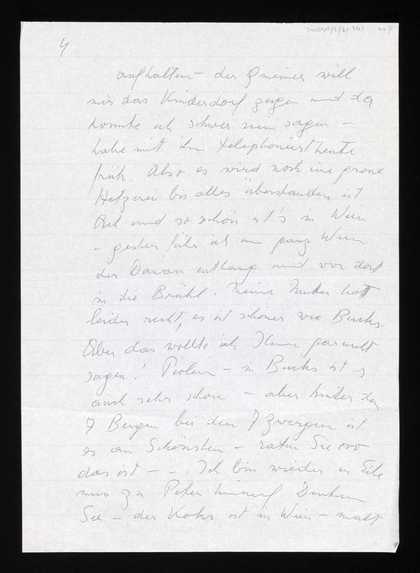 4
aufhalten – der Gmeiner will
mir das Kinderdorf zeigen und da
konnte ich schwer nein sagen –
habe mit ihm telephoniert heute
früh. Also es wird noch eine
Hetzerei bis alles überstanden ist
und so schön ist's in Wien
– gestern fuhr ich um ganz Wien
der Donau entlang und von dort
in die Brühl. Meine hat
leider recht, es ist schöner wie Buchs
Aber das wollte ich Ihnen gar nicht
sagen! – in Buchs ist es
auch sehr schön – aber hinter den
7 Bergen bei den 7 Zwergen ist
es am Schönsten – raten Sie wo
das ist – – . Ich bin wieder in Eile
muss zu Peter hinauf
Sie – der ist in Wien – malt